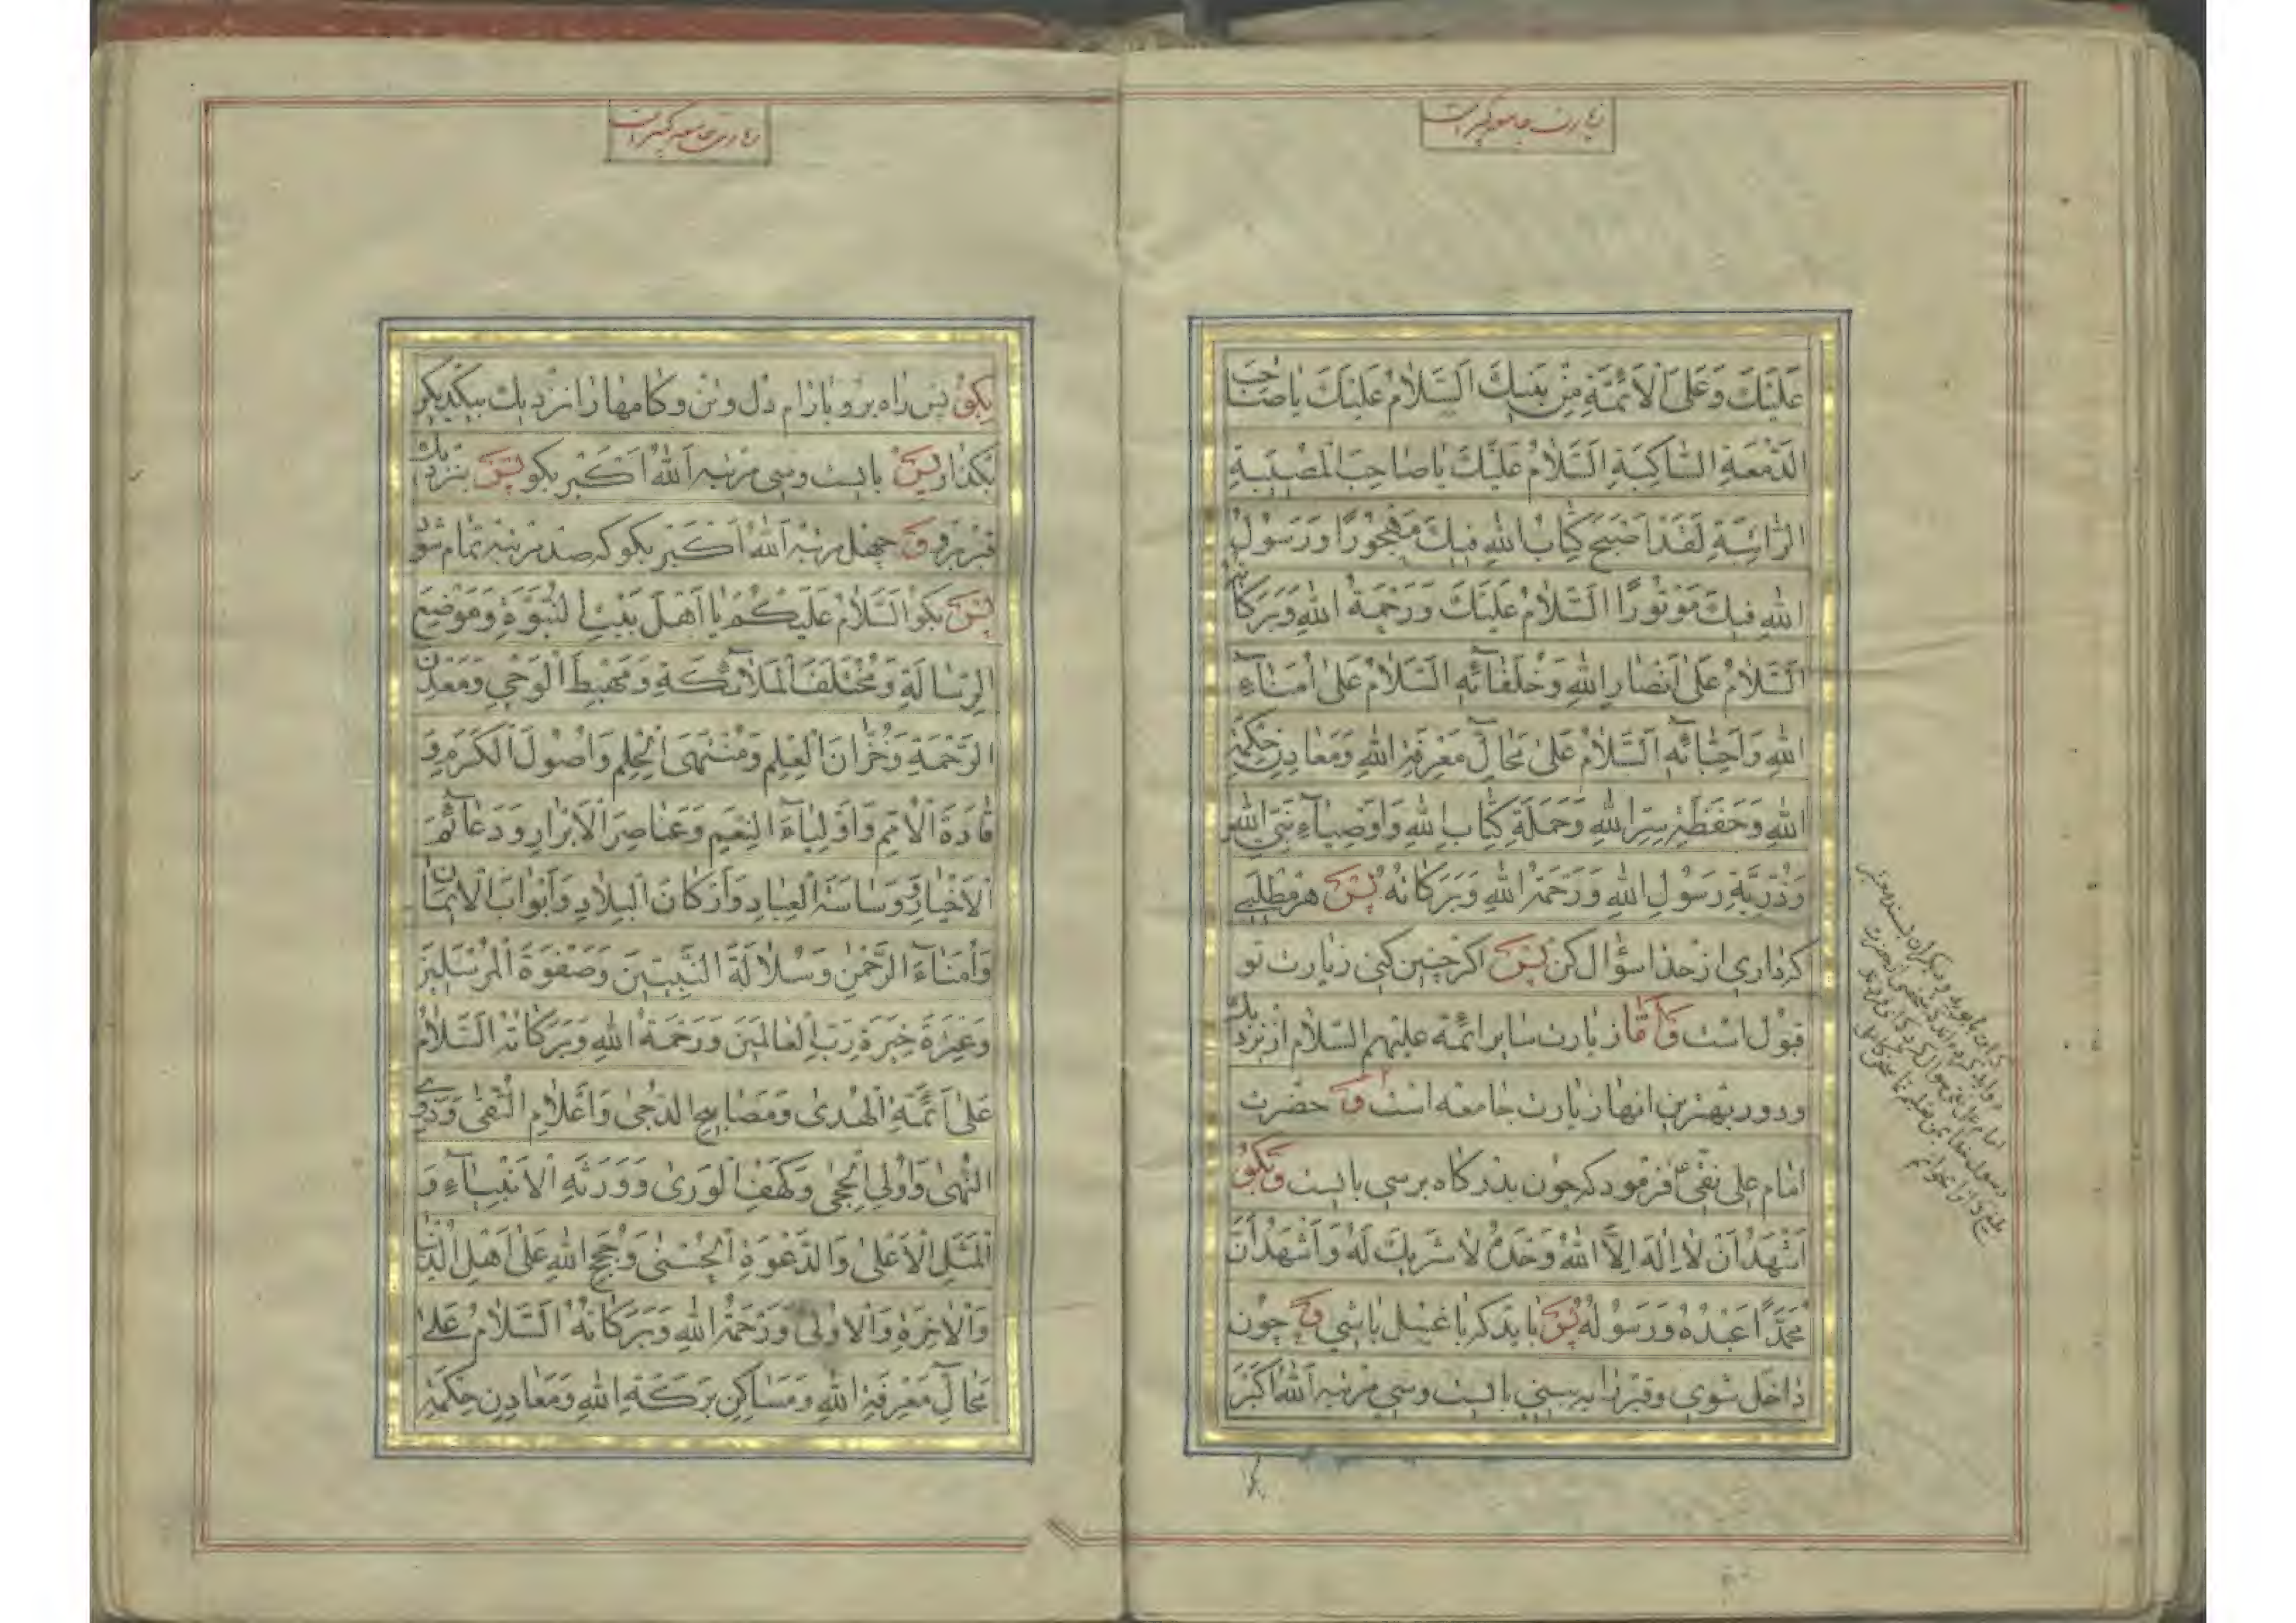 زیارت جامعه کبیر است
عَلَيْكَ وَعَلَى الْاَئِمَّةِ مِنْ بَنيكَ اَلسَّلامُ عَلَيْكَ يا صاحِبَ
الدَّمْعَةِ السّاكِبَةِ اَلسَّلامُ عَلَيْكَ يا صاحِبَ الْمُصيبَةِ
الرّاتِبَةِ لَقَدْ اَصْبَحَ كِتابُ اللهِ فيكَ مَهْجُورًا وَرَسُولُ
اللهِ فيكَ مَوْتُورًا اَلسَّلامُ عَلَيْكَ وَرَحْمَةُ اللهِ وَبَرَكاتُهُ
اَلسَّلامُ عَلى اَنْصارِ اللهِ وَخُلَفائِهِ اَلسَّلامُ عَلى اُمَناءِ
اللهِ وَاَحِبّائِهِ اَلسَّلامُ عَلى مَحالِّ مَعْرِفَةِ اللهِ وَمَعادِنِ حِكْمَةِ
اللهِ وَحَفَظَةِ سِرِّ اللهِ وَحَمَلَةِ كِتابِ اللهِ وَاَوْصِياءِ نَبِيِّ اللهِ
وَذُرِّيَّةِ رَسُولِ اللهِ وَرَحْمَةُ اللهِ وَبَرَكاتُهُ پس هر مطلبی
که داری از خدا سؤال کن پس اگر چنین کنی زیارت تو
قبول است و اما زیارت سایر ائمه علیهم السلام از نزدیك
و دور بهترین انها زیارت جامعه است و حضرت
امام علی نقی ع فرمود که چون بدرگاه برسی بایست و بگو
اَشْهَدُ اَنْ لا اِلهَ اِلاَّ اللهُ وَحْدَهُ لا شَريكَ لَهُ وَاَشْهَدُ اَنَّ
مُحَمَّدًا عَبْدُهُ وَرَسُولُهُ پس باید که با غسل باشی و چون
داخل شوی و قبر را به بینی بایست و سی مرتبه اَللهُ اَكْبَرُ
زیارت جامعه کبیر است
بگو پس راه برو بارام دل و تن و کامها را نزدیك بیکدیکر
بگذار پس بایست و سی مرتبه اَللهُ اَكْبَر بگو پس بنزدیك
قبر برو و چهل مرتبه اَللهُ اَكْبَر بگو که صد مرتبه تمام شود
پس بگو اَلسَّلامُ عَلَيْكُمْ يا اَهْلَ بَيْتِ النُّبُوَّةِ وَمَوْضِعَ
الرِّسالَةِ وَمُخْتَلَفَ الْمَلائِكَةِ وَمَهْبِطَ الْوَحْيِ وَمَعْدِنَ
الرَّحْمَةِ وَخُزّانَ الْعِلْمِ وَمُنْتَهَى الْحِلْمِ وَاُصُولَ الْكَرَمِ وَ
قادَةَ الْاُمَمِ وَاَوْلِياءَ النِّعَمِ وَعَناصِرَ الْاَبْرارِ وَدَعائِمَ
الْاَخْيارِ وَساسَةَ الْعِبادِ وَاَرْكانَ الْبِلادِ وَاَبْوابَ الْايمانِ
وَاُمَناءَ الرَّحْمنِ وَسُلالَةَ النَّبِيّينَ وَصَفْوَةَ الْمُرْسَلينَ
وَعِتْرَةَ خِيَرَةِ رَبِّ الْعالَمينَ وَرَحْمَةُ اللهِ وَبَرَكاتُهُ اَلسَّلامُ
عَلى اَئِمَّةِ الْهُدى وَمَصابيحِ الدُّجى وَاَعْلامِ التُّقى وَذَوِي
النُّهى وَاُولِي الْحِجى وَكَهْفِ الْوَرى وَوَرَثَةِ الْاَنْبِياءِ وَ
الْمَثَلِ الْاَعْلى وَالدَّعْوَةِ الْحُسْنى وَحُجَجِ اللهِ عَلى اَهْلِ الدُّنْيا
وَالْاخِرَةِ وَالْاُولى وَرَحْمَةُ اللهِ وَبَرَكاتُهُ اَلسَّلامُ عَلى
مَحالِّ مَعْرِفَةِ اللهِ وَمَساكِنِ بَرَكَةِ اللهِ وَمَعادِنِ حِكْمَةِ